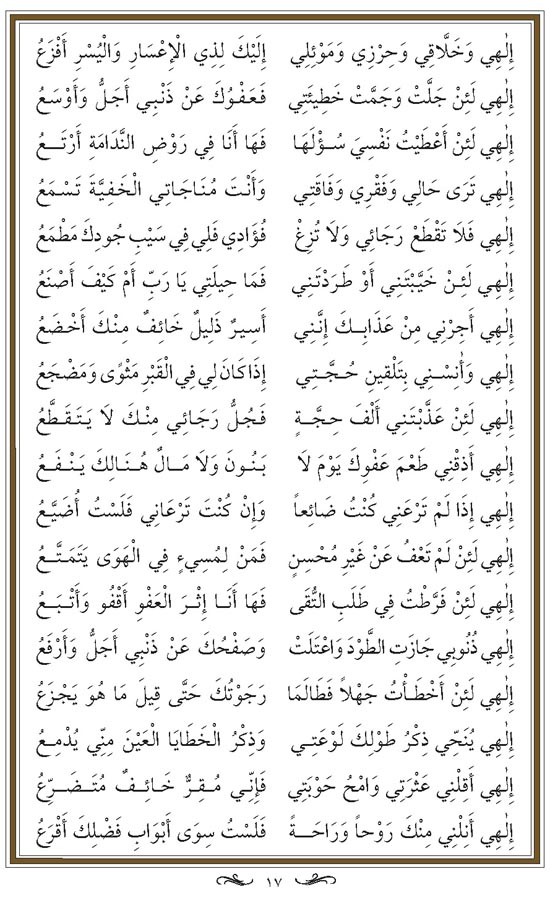 إِلٰهِي وَخَلَّاقِي وَحِرْزِي وَمَوْئِلِي إِلَيْكَ لِذِي الْإِعْسَارِ وَالْيُسْرِ أَفْزَعُ
إِلٰهِي لَئِنْ جَلَّتْ وَجَمَّتْ خَطِيئَتِي فَعَفْوُكَ عَنْ ذَنْبِي أَجَلُّ وَأَوْسَعُ
إِلٰهِي لَئِنْ أَعْطَيْتُ نَفْسِيَ سُؤْلَهَا فَهَا أَنَا فِي رَوْضِ النَّدَامَةِ أَرْتَعُ
إِلٰهِي تَرَى حَالِي وَفَقْرِي وَفَاقَتِي وَأَنْتَ مُنَاجَاتِي الْخَفِيَّةَ تَسْمَعُ
إِلٰهِي فَلَا تَقْطَعْ رَجَائِي وَلَا تُزِغْ فُؤَادِي فَلِي فِي سَيْبِ جُودِكَ مَطْمَعُ
إِلٰهِي لَئِنْ خَيَّبْتَنِي أَوْ طَرَدْتَنِي فَمَا حِيلَتِي يَا رَبِّ أَمْ كَيْفَ أَصْنَعُ
إِلٰهِي أَجِرْنِي مِنْ عَذَابِكَ إِنَّنِي أَسِيرٌ ذَلِيلٌ خَائِفٌ مِنْكَ أَخْضَعُ
إِلٰهِي وَأٰنِسْنِي بِتَلْقِينِ حُجَّتِي إِذَا كَانَ لِي فِي الْقَبْرِ مَثْوًى وَمَضْجَعُ
إِلٰهِي لَئِنْ عَذَّبْتَنِي أَلْفَ حِجَّةٍ فَجُلُّ رَجَائِي مِنْكَ لَا يَتَقَطَّعُ
إِلٰهِي أَذِقْنِي طَعْمَ عَفْوِكَ يَوْمَ لَا بَنُونَ وَلَا مَالٌ هُنَالِكَ يَنْفَعُ
إِلٰهِي إِذَا لَمْ تَرْعَنِي كُنْتُ ضَائِعاً وَإِنْ كُنْتَ تَرْعَانِي فَلَسْتُ أُضَيَّعُ
إِلٰهِي لَئِنْ لَمْ تَعْفُ عَنْ غَيْرِ مُحْسِنٍ فَمَنْ لِمُسِيءٍ فِي الْهَوَى يَتَمَتَّعُ
إِلٰهِي لَئِنْ فَرَّطْتُ فِي طَلَبِ التُّقَى فَهَا أَنَا إِثْرَ الْعَفْوِ أَقْفُو وَأَتْبَعُ
إِلٰهِي ذُنُوبِي جَازَتِ الطَّوْدَ وَاعْتَلَتْ وَصَفْحُكَ عَنْ ذَنْبِي أَجَلُّ وَأَرْفَعُ
إِلٰهِي لَئِنْ أَخْطَأْتُ جَهْلاً فَطَالَمَا رَجَوْتُكَ حَتَّى قِيلَ مَا هُوَ يَجْزَعُ
إِلٰهِي يُنَحِّي ذِكْرُ طَوْلِكَ لَوْعَتِي وَذِكْرُ الْخَطَايَا الْعَيْنَ مِنِّي يُدْمِعُ
إِلٰهِي أَقِلْنِي عَثْرَتِي وَامْحُ حَوْبَتِي فَإِنِّي مُقِرٌّ خَائِفٌ مُتَضَرِّعُ
إِلٰهِي أَنِلْنِي مِنْكَ رَوْحاً وَرَاحَةً فَلَسْتُ سِوَى أَبْوَابِ فَضْلِكَ أَقْرَعُ
١٧